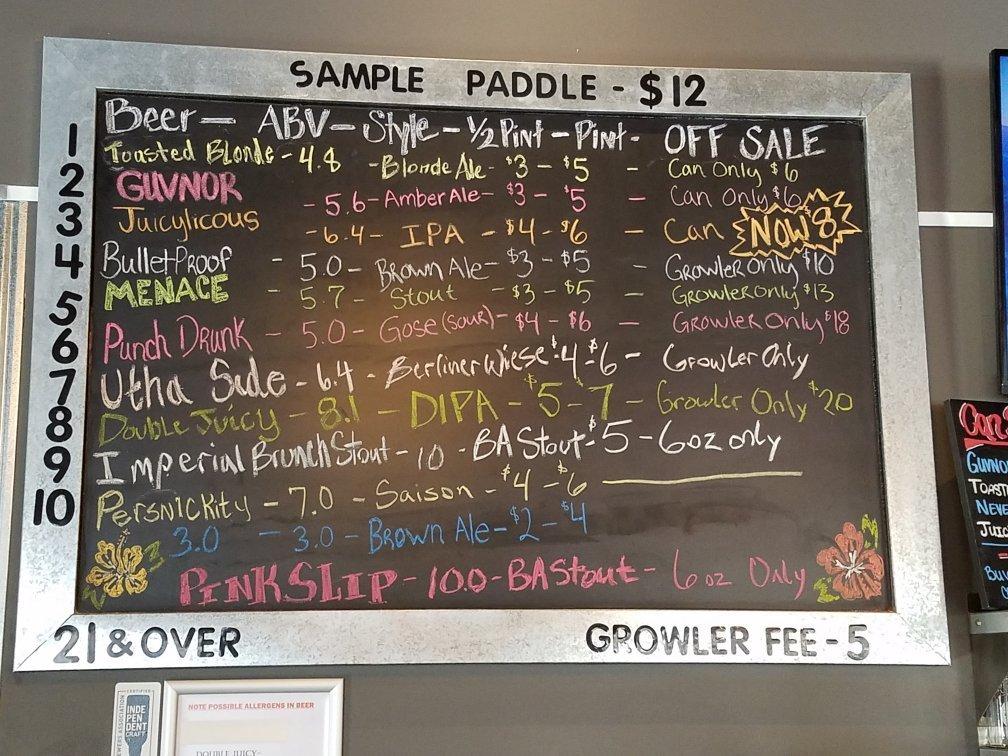 SAMPLE PADDLE - $12
Beer - ABV - Style - 1/2 Pint - Pint - OFF SALE
1 Toasted Blonde - 4.8 - Blonde Ale - $3 - $5 - Can Only $6
2 GUVNOR - 5.6 - Amber Ale - $3 - $5 - Can Only $6
3 Juicylicous - 6.4 - IPA - $4 - $6 - Can NOW 8
4 BulletProof - 5.0 - Brown Ale - $3 - $5 - Growler Only $10
MENACE - 5.7 - Stout - $3 - $5 - Growler Only $13
5 Punch Drunk - 5.0 - Gose (sour) - $4 - $6 - Growler Only $18
6 Utha Side - 6.4 - Berliner Wiese $4 $6 - Growler Only
7 Double Juicy - 8.1 - DIPA - $5 - 7 - Growler Only $20
8 Imperial Brunch Stout - 10 - BA Stout - $5 - 6oz only
9 Persnickity - 7.0 - Saison - $4 - $6
10 3.0 - 3.0 - Brown Ale - $2 - $4
PINK SLIP - 10.0 - BA Stout - 6 oz Only
21 & OVER
GROWLER FEE - 5
INDE
PEN
DENT
CRAFT
NOTE POSSIBLE ALLERGENS IN BEER
DOUBLE JUICY-